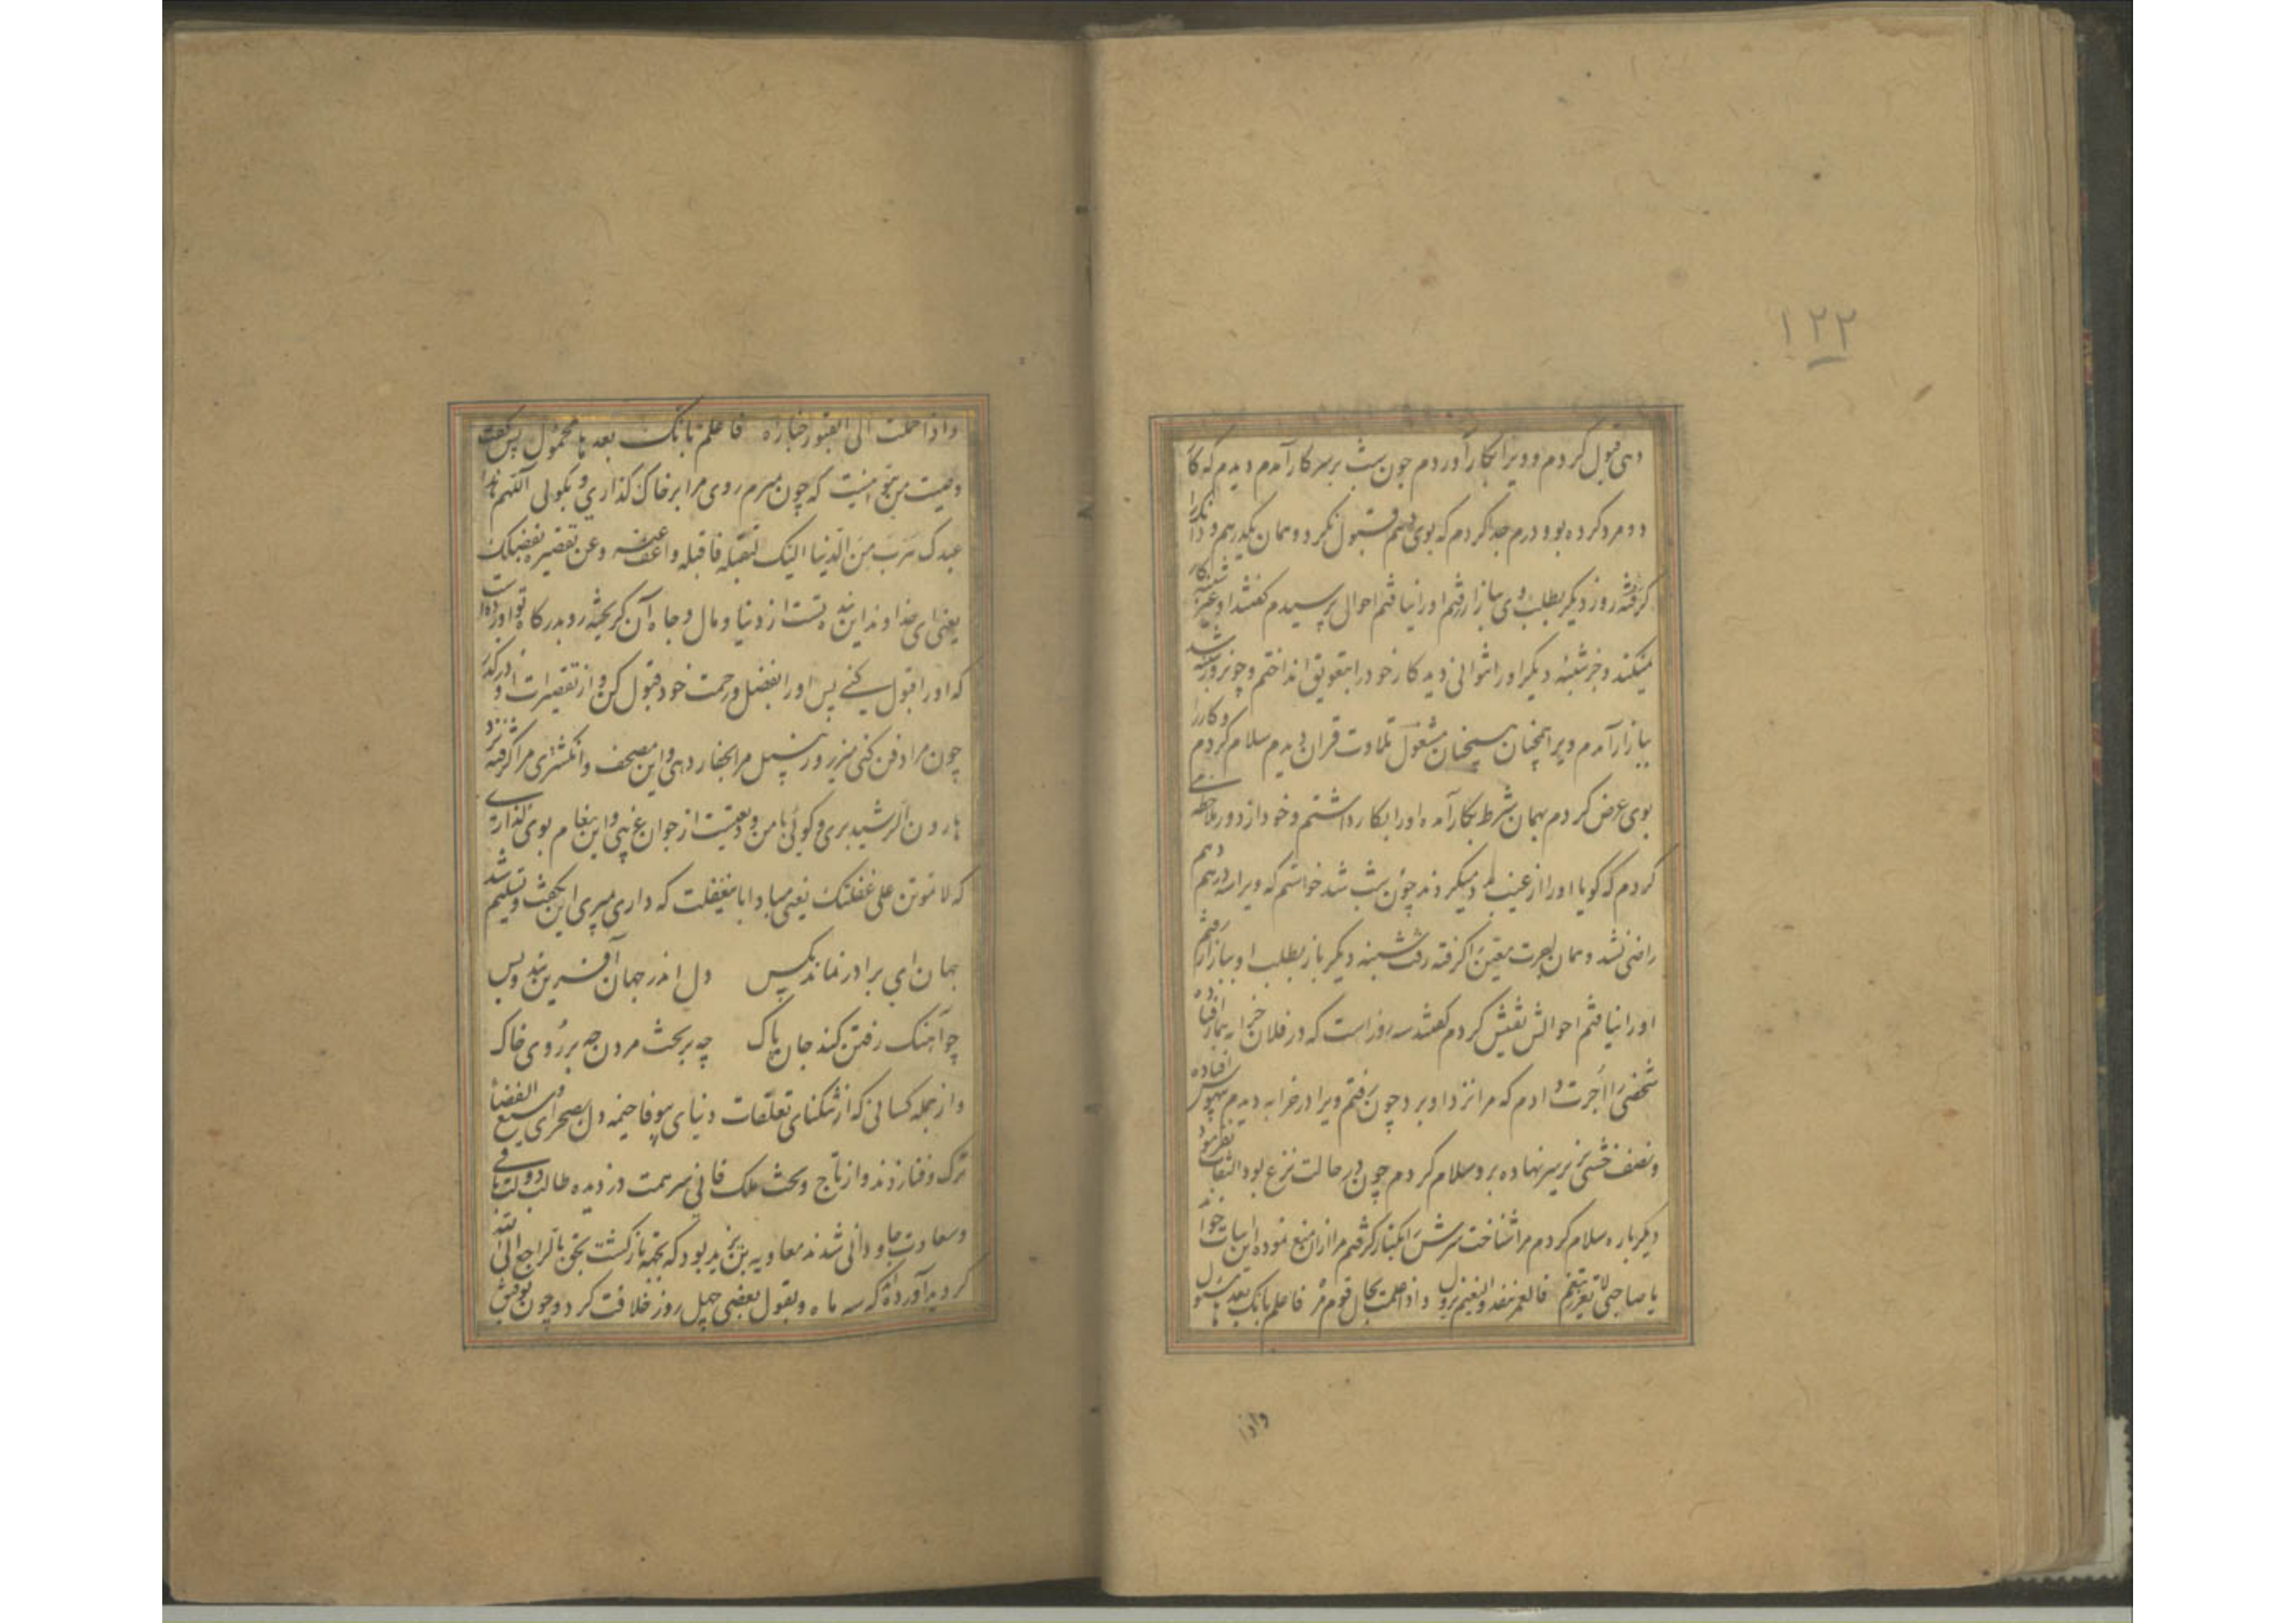 ۱۲۲
دهی قبول کردم و ویرا بکار آوردم چون شب بر سر کار آمدم دیدم که کار
دو مرد کرده بود دو درم جدا کردم که بوی دهم قبول نکرد و همان یکدرهم و دانک را
گرفته روز دیگر بطلب وی ببازار رفتم او را نیافتم احوال پرسیدم گفتند او جز شنبه کار
نمیکند و جز شنبه دیگر او را نتوانی دید کار خود را بتعویق انداختم و چون روز شنبه شد
ببازار آمدم ویرا همچنان مشغول تلاوت قران دیدم سلام کردم و کار را
بوی عرض کردم بهمان شرط بکار آمد او را بکار داشتم و خود از دور ملاحظه می
کردم که گویا او را از غیب مدد میکردند چون شب شد خواستم که ویرا سه درهم دهم
راضی نشد و همان اجرت معین را گرفته رفت شنبه دیگر باز بطلب او ببازار رفتم
او را نیافتم احوالش تفتیش کردم گفتند سه روز است که در فلان خرابه بیمار افتاده
شخصی را اجرت دادم که مرا نزد او برد چون رفتم ویرا در خرابه دیدم بیهوش افتاده
و نصف خشتی زیر سر نهاده برو سلام کردم چون در حالت نزع بود التفات نفرمود
دیگر باره سلام کردم مرا شناخت سرش را بکنار گرفتم مرا از ان منع نموده این ابیات خواند
یا صاحبی لا تغترر بتنعم فالعمر ینفد والنعیم یزول واذا علمت بحال قوم فاعلم بانک بعدها مسئول
واذا
واذا حملت الی القبور جنازه فاعلم بانک بعدها محمول پس گفت
وصیت من بتو اینست که چون بمیرم روی مرا بر خاک گذاری و بگوئی اللهم هذا
عبدک هرب من الدنیا الیک لتقبله فاقبله واعف عنه وعن تقصیره بفضلک
یعنی ای خداوند این بنده تست از دنیا و مال و جاه آن گریخته رو بدرگاه تو آورده است
که او را قبول کنی پس او را بفضل و رحمت خود قبول کن و از تقصیرات او درگذر
چون مرا دفن کنی مزر و زنبیل مرا بحفار دهی و این مصحف و انگشتری مرا گرفته نزد
هارون الرشید بری و گوئی با من ودیعتیست از جوان غریبی و این پیغام بوی گذاری
که لا تموتن علی غفلتک یعنی مبادا با غفلت که داری میری این بگفت و تسلیم شد
جهان ای برادر نماند بکس دل اندر جهان آفرین بند و بس
چو آهنگ رفتن کند جان پاک چه بر تخت مردن چه بر روی خاک
و از جمله کسانی که از تنگنای تعلقات دنیای بیوفا خیمه دل بصحرای وسیع الفضا
ترک و فنا زدند و از تاج و تخت ملک فانی سر همت دزدیده طالب دولت باقی
و سعادت جاودانی شدند معاویه بن یزید بود که بتخته بازگشت بتخن بالراجع الی الله
گردید آورده اند که سه ماه و بقول بعضی چهل روز خلافت کرد و چون توفیق